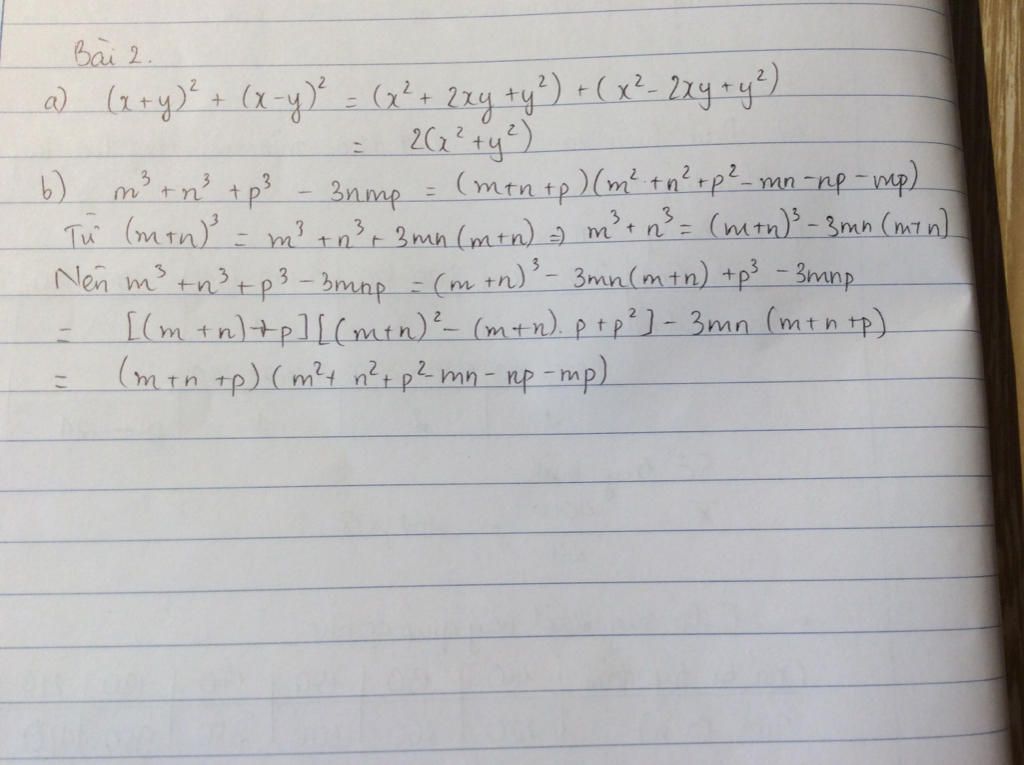 Bài 2.
a) (x+y)² + (x-y)² = (x² + 2xy + y²) + (x² - 2xy + y²)
= 2(x² + y²)
b) m³ + n³ + p³ - 3nmp = (m+n+p)(m² + n² + p² - mn - np - mp)
Từ (m+n)³ = m³ + n³ + 3mn(m+n) ⇒ m³ + n³ = (m+n)³ - 3mn(m+n)
Nên m³ + n³ + p³ - 3mnp = (m+n)³ - 3mn(m+n) + p³ - 3mnp
= [(m+n)+p][(m+n)² - (m+n).p + p²] - 3mn(m+n+p)
= (m+n+p)(m² + n² + p² - mn - np - mp)